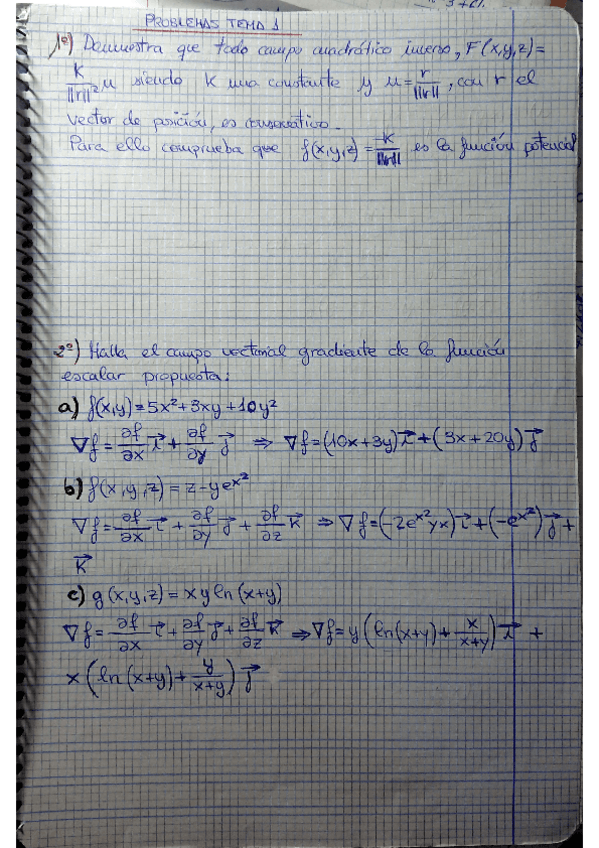 PROBLEMAS TEMA 1
1º) Demuestra que todo campo cuadrático inverso, F(x,y,z)=
K/||r||² u siendo K una constante y u = r/||r||, con r el
vector de posición, es conservativo.
Para ello comprueba que f(x,y,z) = -K/||r|| es la función potencial
2º) Halla el campo vectorial gradiente de la función
escalar propuesta:
a) f(x,y) = 5x²+3xy+10y²
∇f = ∂f/∂x i⃗ + ∂f/∂y j⃗ ⇒ ∇f = (10x+3y) i⃗ + (3x+20y) j⃗
b) f(x,y,z) = z-ye^x²
∇f = ∂f/∂x i⃗ + ∂f/∂y j⃗ + ∂f/∂z k⃗ ⇒ ∇f = (-2e^x² yx) i⃗ + (-e^x²) j⃗ +
k⃗
c) g(x,y,z) = xy ln(x+y)
∇f = ∂f/∂x i⃗ + ∂f/∂y j⃗ + ∂f/∂z k⃗ ⇒ ∇f = y(ln(x+y) + x/(x+y)) i⃗ +
x(ln(x+y) + y/(x+y)) j⃗